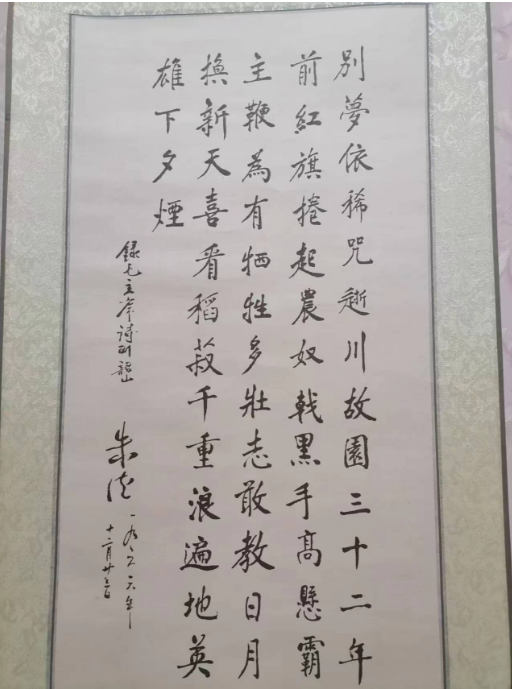 別夢依稀咒逝川故園三十二年
前紅旗捲起農奴戟黑手高懸霸
主鞭為有牺牲多壯志敢教日月
換新天喜看稻菽千重浪遍地英
雄下夕煙
錄毛主席詩到韶山
朱德 一九六六年
十二月廿六日